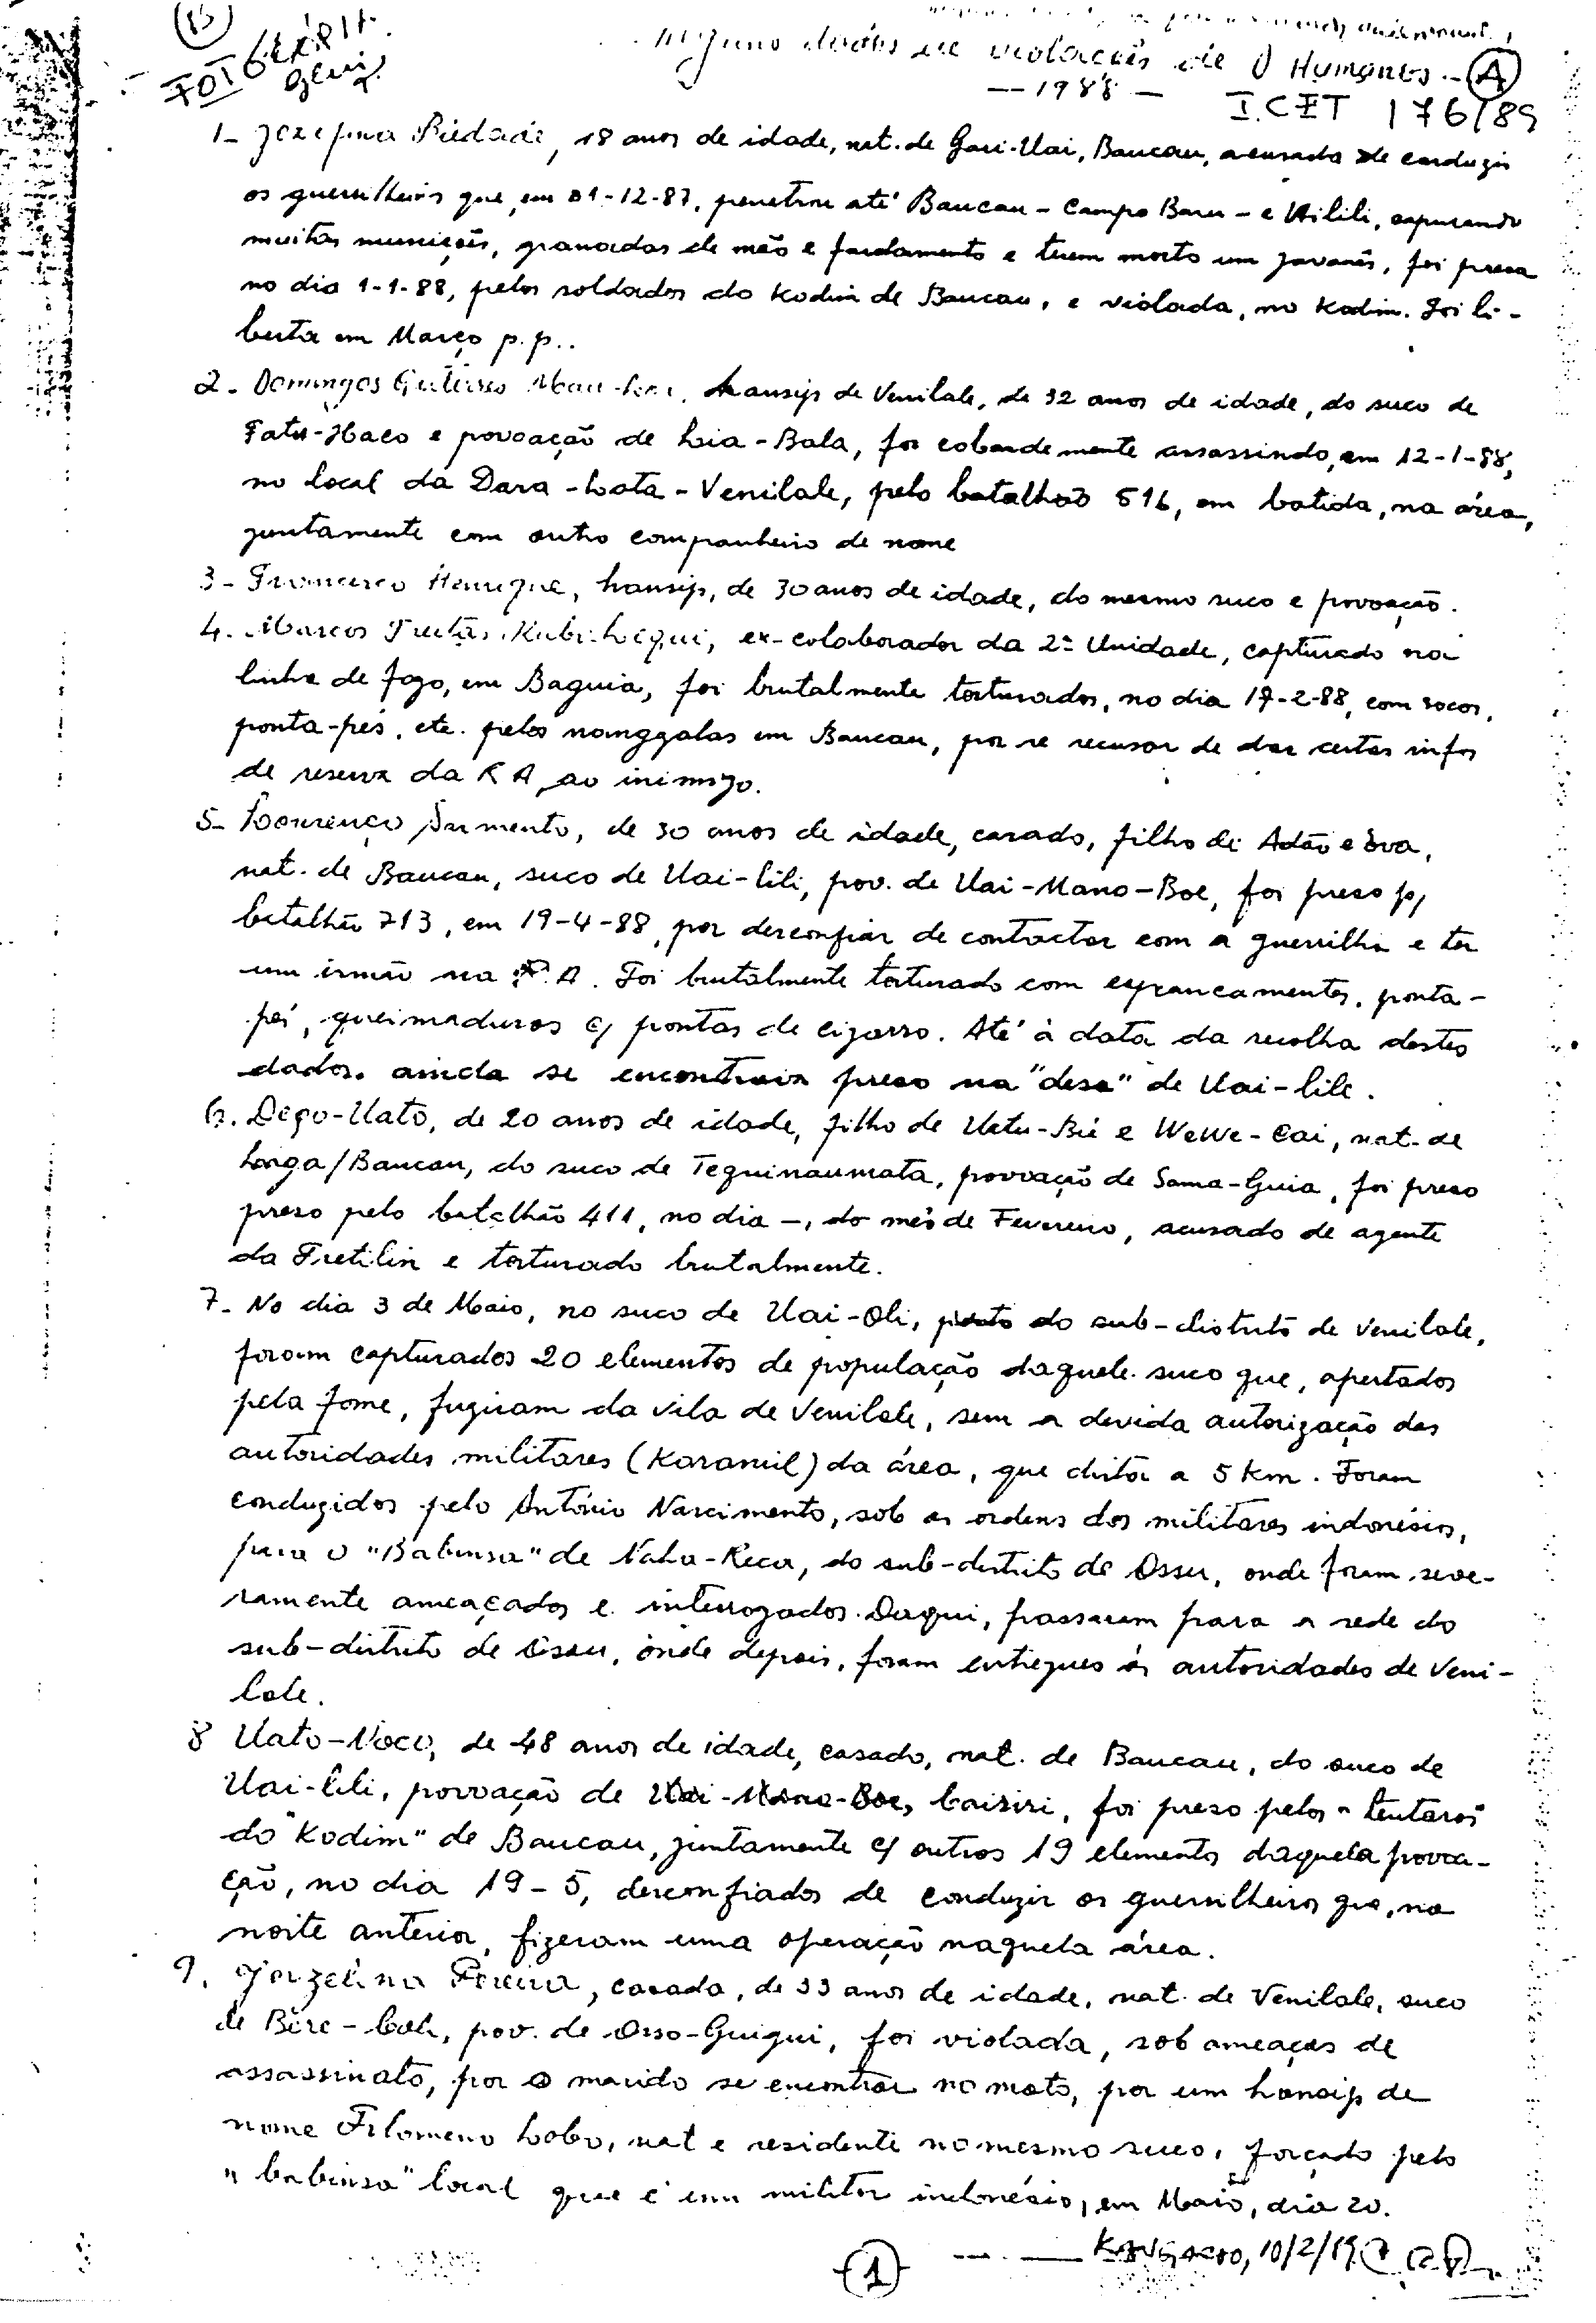 (13)
Alguns dados de violações de D Humanos - (A)
— 1988 —
I.CET 176/89
1- Jozefina Piedade, 18 anos de idade, nat. de Gari-Uai, Baucau, acusada de conduzir
os guerrilheiros que, em 31-12-87, penetrou até Baucau - Campo Baru - e Uilili, capurando
muitas munições, granadas de mão e fardamento e terem morto um javanês, foi presa
no dia 1-1-88, pelos soldados do Kodim de Baucau, e violada, no Kodim. Foi li-
berta em Março p.p..
2- Domingos Gutérres, hansip de Venilale, de 32 anos de idade, do suco de
Fatu-Haco e povoação de Lia-Bala, foi cobardemente assassindo, em 12-1-88,
no local da Dara-Lata-Venilale, pelo batalhão 516, em batida, na área,
juntamente com outro companheiro de nome
3- Francisco Henrique, hansip, de 30 anos de idade, do mesmo suco e povoação.
4. Marcos Freitas, ex-colaborador da 2ª Unidade, capturado na
linha de fogo, em Baguia, foi brutalmente torturados, no dia 17-2-88, com socos,
ponta-pés, etc. pelos nanggalas em Baucau, por se recusar de dar certas infos
de reserva da RA, ao inimigo.
5- Lourenço Sarmento, de 30 anos de idade, casado, filho de Adão e Eva,
nat. de Baucau, suco de Uai-lili, pov. de Uai-Mano-Boe, foi preso p/
batalhão 713, em 19-4-88, por desconfiar de contactar com a guerrilha e ter
um irmão na R.A. Foi brutalmente torturado com espancamentos, ponta-
pés, queimaduras c/ pontas de cigarro. Até à data da recolha destes
dados, ainda se encontrava preso na "desa" de Uai-lili.
6. Dego-Uato, de 20 anos de idade, filho de Uatu-Bié e WeWe-Cai, nat. de
Laga/Baucau, do suco de Tequinaumata, povoação de Sama-Guia, foi preso
preso pelo batalhão 411, no dia -, do mês de Fevereiro, acusado de agente
da Fretilin e torturado brutalmente.
7- No dia 3 de Maio, no suco de Uai-Oli, do sub-distrito de Venilale,
foram capturados 20 elementos de população daquele suco que, apertados
pela fome, fugiram da vila de Venilale, sem a devida autorização das
autoridades militares (Koramil) da área, que dista a 5 km. Foram
conduzidos pelo António Nascimento, sob as ordens dos militares indonésios,
para o "Babinsa" de Naha-Reca, do sub-distrito de Ossu, onde foram seve-
ramente ameaçados e interrogados. Daqui, passaram para a sede do
sub-distrito de Ossu, onde depois, foram entregues às autoridades de Veni-
lale.
8 Uato-Noco, de 48 anos de idade, casado, nat. de Baucau, do suco de
Uai-lili, povoação de Uai-Mano-Boe, Caisiri, foi preso pelos "tentaras"
do "Kodim" de Baucau, juntamente c/ outros 19 elementos daquela povoa-
ção, no dia 19-5, desconfiados de conduzir os guerrilheiros que, na
noite anterior, fizeram uma operação naquela área.
9. Jozelina Pereira, casada, de 33 anos de idade, nat. de Venilale, suco
de pov. de Osso-Guigui, foi violada, sob ameaças de
assassinato, por o marido se encontrar no mato, por um hansip de
nome Filomeno Lobo, nat e residente no mesmo suco, forçado pelo
"babinsa" local que é um militar indonésio, em Maio, dia 20.
10/2/19
(1)